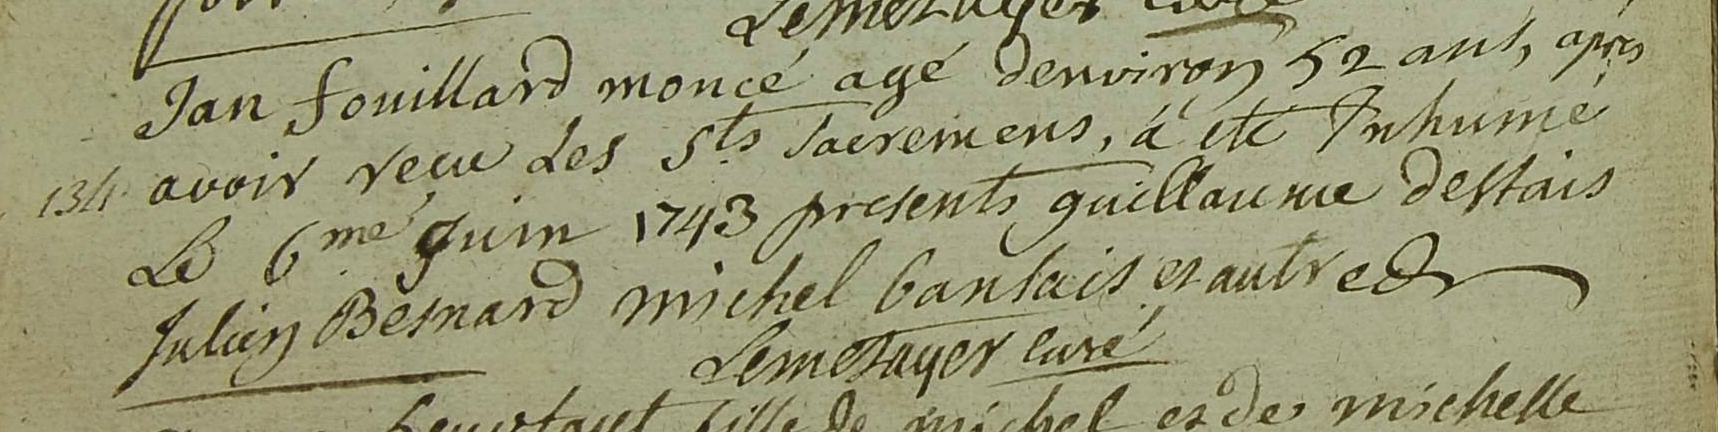 Lemetayer curé
Jan fouillard moncé agé denviron 52 ans, après
134 avoir recu Les Sts Sacremens, à eté Inhumé
Le 6me Juin 1743 presents guillaume destais
Julien Besnard michel banlais et autre &
Lemetayer curé
fille de michel et de michelle